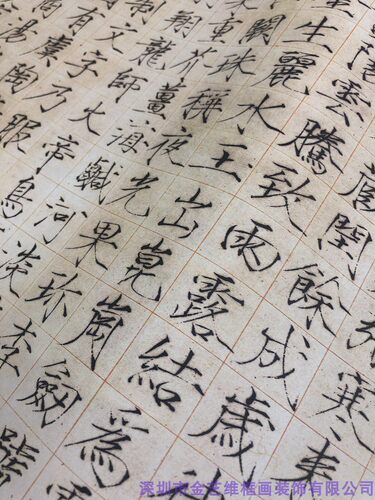 寒來
閏餘成歲
陽雲騰致雨露結為
生麗水玉出崑岡劍號
闕珠稱夜光果珍李
重芥薑海鹹河淡
翔龍師火帝鳥
文字乃服
有虞陶
湯
深圳市金三维檀画装饰有限公司